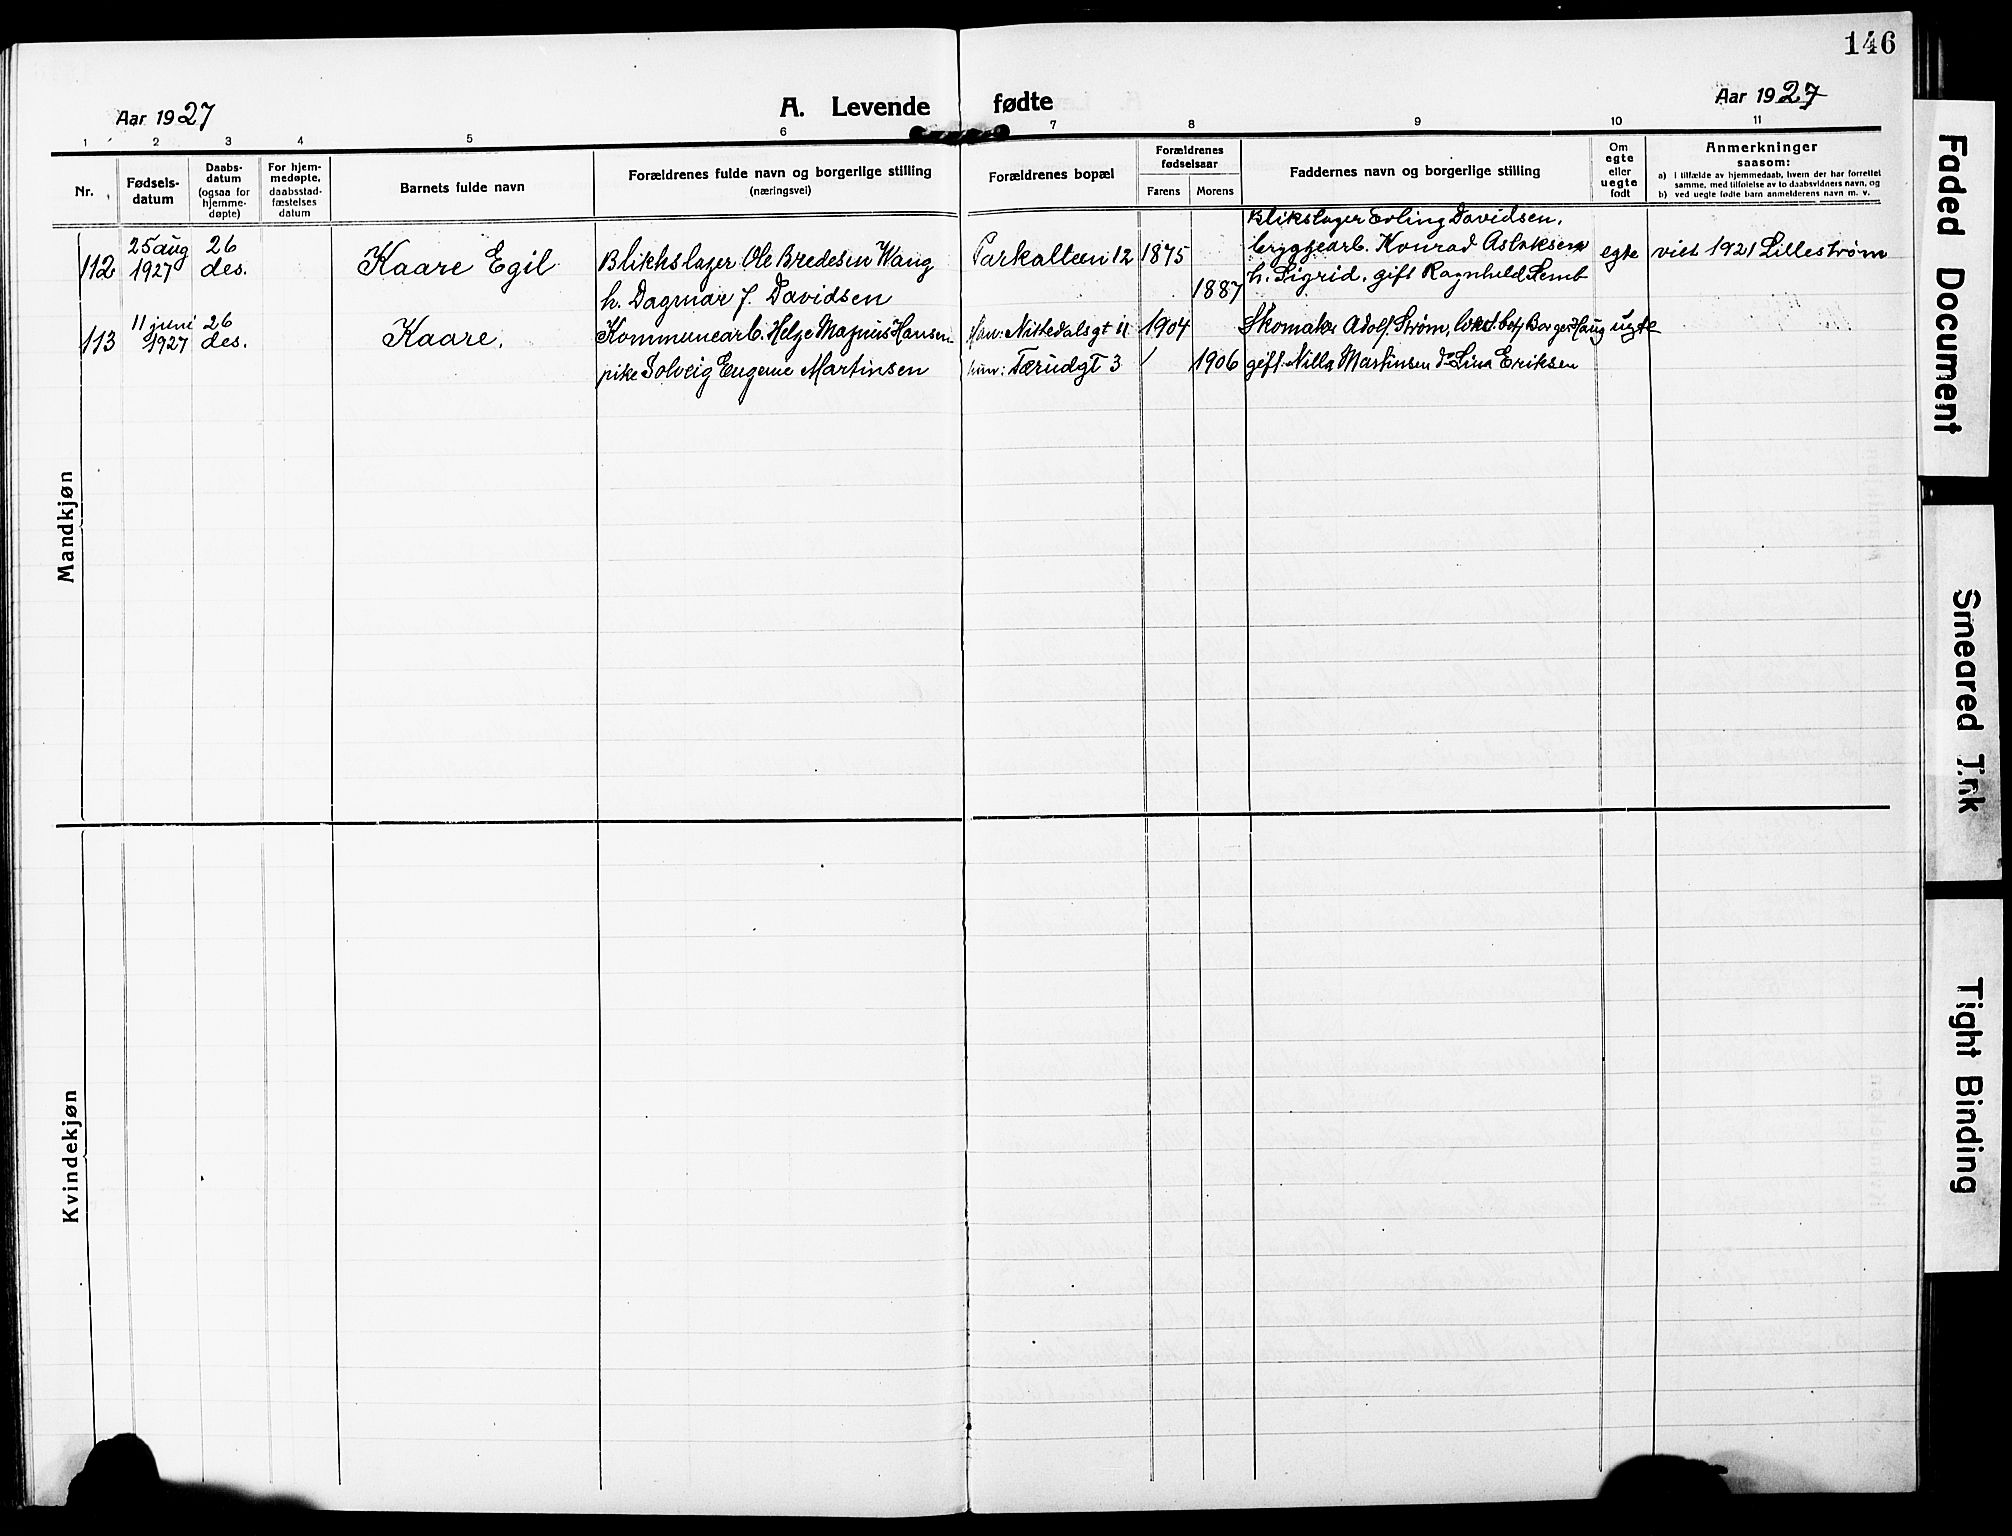 146
Aar 1927
A. Levende fødte
Aar 1927
1 2 3 4 5 6 7 8 9 10 11
Nr.
Fødsels-
datum
Daabs-
datum
(ogsaa for
hjemme-
døpte)
For hjem-
medøpte,
daabsstad-
fæstelses
datum
Barnets fulde navn
Forældrenes fulde navn og borgerlige stilling
(næringsvei)
Forældrenes bopæl
Forældrenes
fødselsaar
Farens Morens
Faddernes navn og borgerlige stilling
Om
egte
eller
uegte
født
Anmerkninger
saasom:
a) i tilfælde av hjemmedaab, hvem der har forrettet
samme, med tilføielse av to daabsvidners navn, og
b) ved uegte fødte barn anmelderens navn m. v.
Mandkjøn
112
25 aug
1927
26
des.
Kaare Egil
Blikkslager Ole Bredesen Wang
h. Dagmar J. Davidsen
Parkalleen 12
1875
1887
Blikslager Erling Davidsen,
bryggearb. Konrad Aslaksen
h. Sigrid, gift Ragnhild Lemb
egte
viet 1921 Lillestrøm
113
11 juni
1927
26
des.
Kaare.
Kommunearb. Helge Magnus Hansen
pike Solveig Eugenie Martinsen
Han: Nittedalsgt 11
hun: Tærudgt 3
1904
1906
Skomaker Adolf Strøm, lokst.betj Borger Haug
gift Nilla Martinsen do Lina Eriksen
ugte
Kvindekjøn
Faded Document
Smeared Ink
Tight Binding